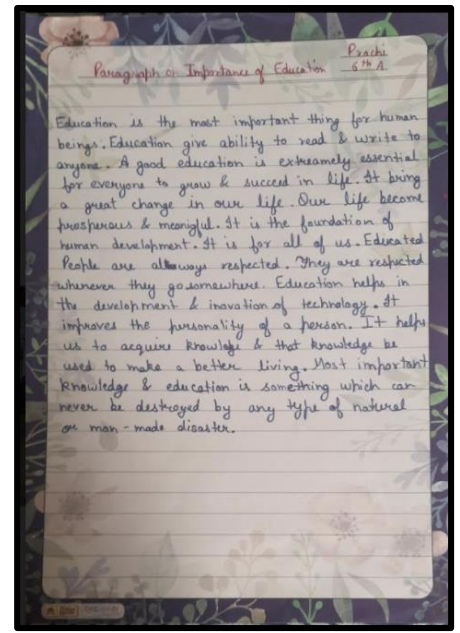 Prachi
Paragraph on Importance of Education 6th A
Education is the most important thing for human
beings. Education give ability to read & write to
anyone. A good education is extreamely essential
for everyone to grow & succeed in life. It bring
a great change in our life. Our life become
prosperous & meanigful. It is the foundation of
human development. It is for all of us. Educated
People are always respected. They are respected
whenever they go somewhere. Education helps in
the development & inovation of technology. It
improves the personality of a person. It helps
us to acquire knowlege & that knowledge be
used to make a better living. Most important
knowledge & education is something which can
never be destroyed by any type of natural
or man-made disaster.